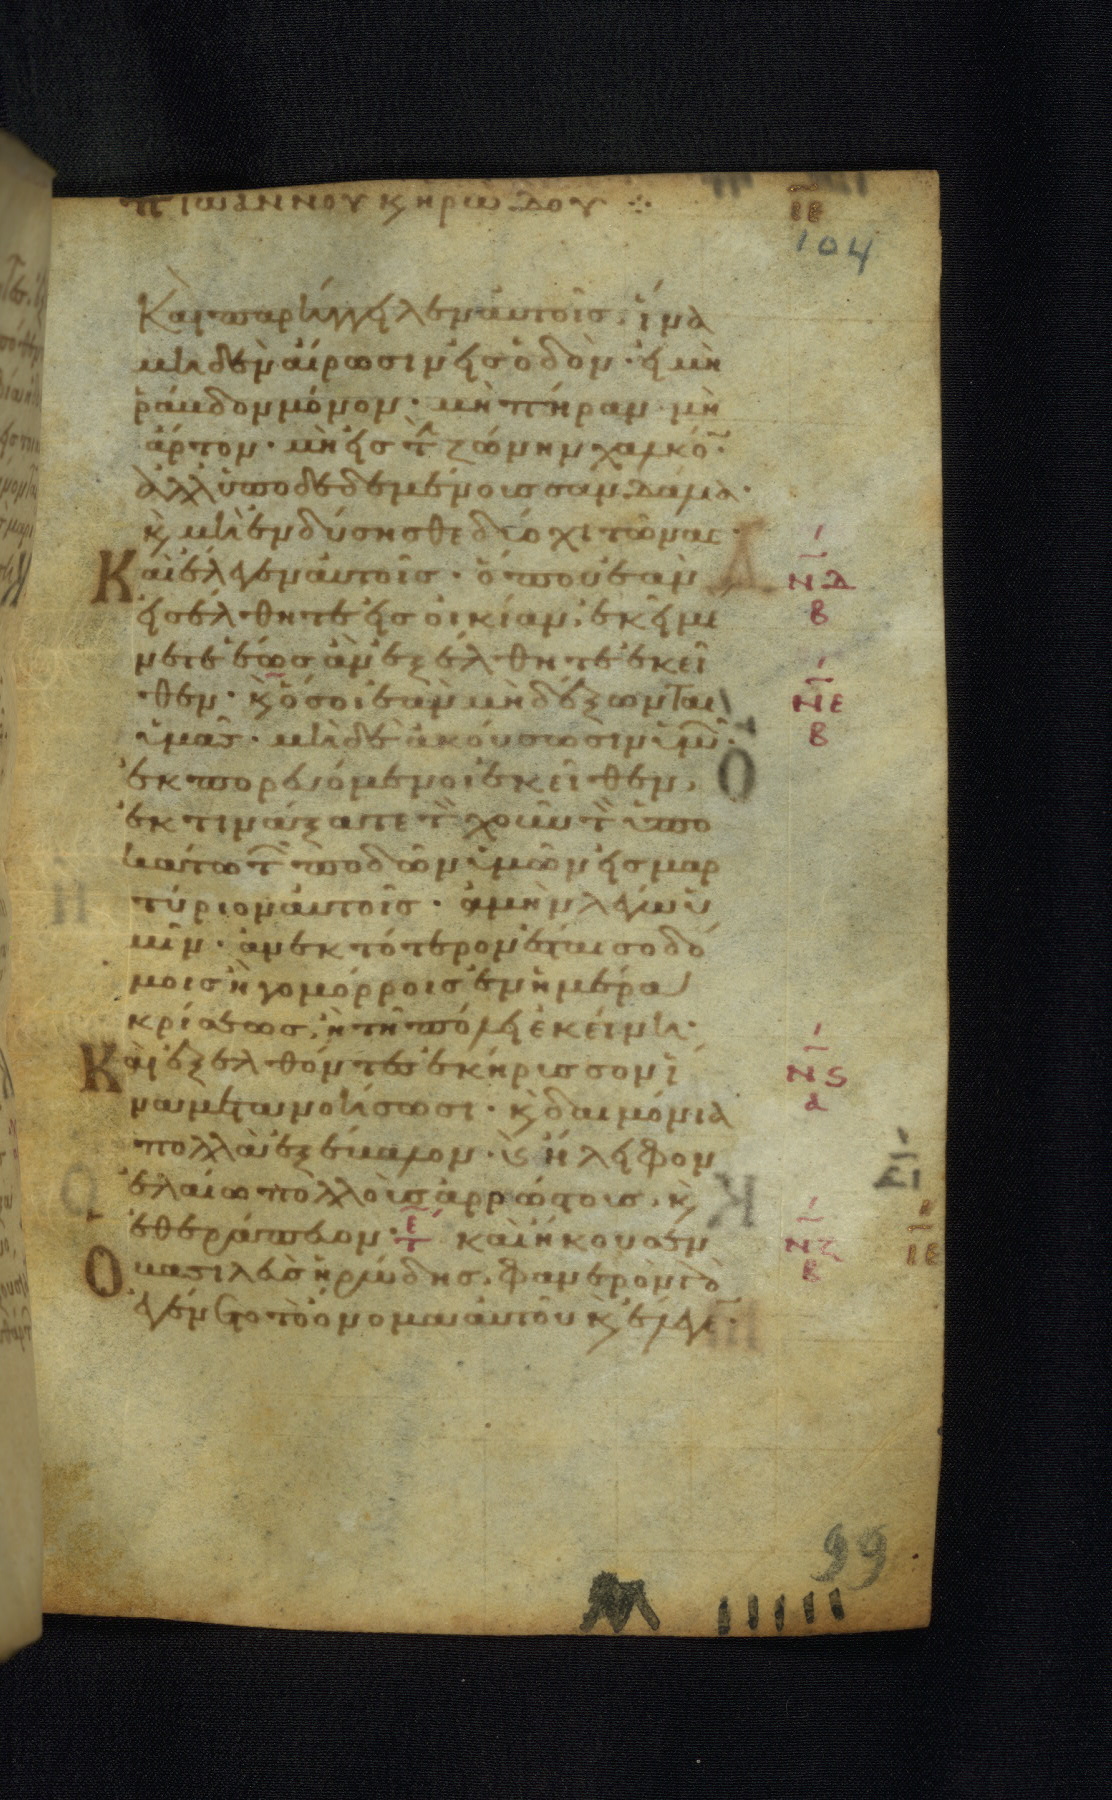 π ΙωΑΝΝΟΥ Κ ΗΡωΔΟΥ ⁘
ΙΕ
104
Και παρήγγελεν αὐτοῖς. ἵνα
μηδὲν αἴρωσιν εἰς ὁδὸν · εἰ μὴ
ῥάβδον μόνον · μὴ πήραν · μὴ
ἄρτον · μὴ εἰς τ ζώνην χαλκό ·
ἀλλ ὑποδεδεμένοις σανδάλια ·
κ μὴ ἐνδύσησθε δύο χιτῶνας ·
Καὶ ἔλεγεν αὐτοῖς · ὅπου ἐὰν
ΝΔ
Β
εἰσέλθητε εἰς οἰκίαν, ἐκεῖ με
νετε ἕως ἂν ἐξέλθητε ἐκεῖ
θεν · κ ὅσοι ἐὰν μὴ δέξωνται
ΝΕ
Β
ὑμᾶς · μηδὲ ἀκούσωσιν ὑμῶ ·
ἐκπορευόμενοι ἐκεῖθεν,
ἐκτινάξατε τ χοῦν τ ὑπο
κάτω τ ποδῶν ὑμῶν εἰς μαρ
τύριον αὐτοῖς · ἀμὴν λέγω ὑ
μῖν · ἀνεκτότερον ἔσται σοδό
μοις ἢ γομόρροις ἐν ἡμέρα
κρίσεως, ἢ τῆ πόλει ἐκείνη ·
Καὶ ἐξελθόντες ἐκήρισσον ἵ
Νς
α
να μετανοήσωσι · κ δαιμόνια
πολλὰ ἐξέβαλον · κ ἤλειφον
ἐλαίω πολλοὺς ἀρρώστους, κ
ἐθεράπευον · τε καὶ ἤκουσεν
ΝΖ
Β
ΙΕ
Ο βασιλεὺς ἡρώδης, φανερὸν
ἐγένετο τὸ ὄνομα αὐτοῦ κ ἔλεγε ·
99